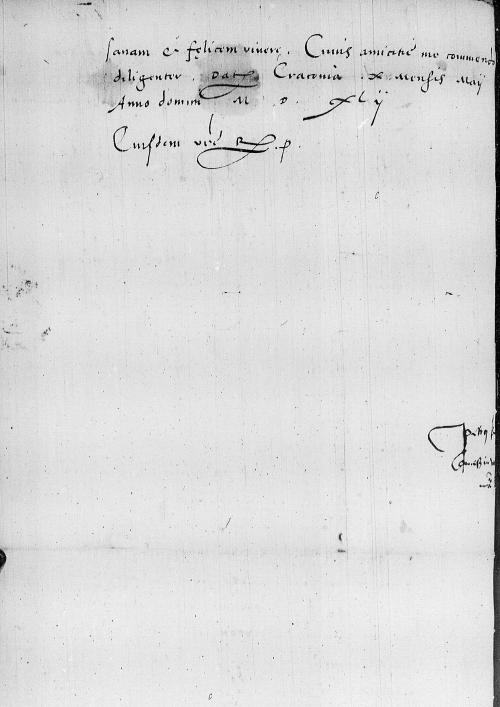 sanam et fęlicem vivere. Cuius amicitię me commendo
diligenter. Dat Cracovia x mensis Maij
Anno domini M D xlij
Eiusdem vrę R. p.